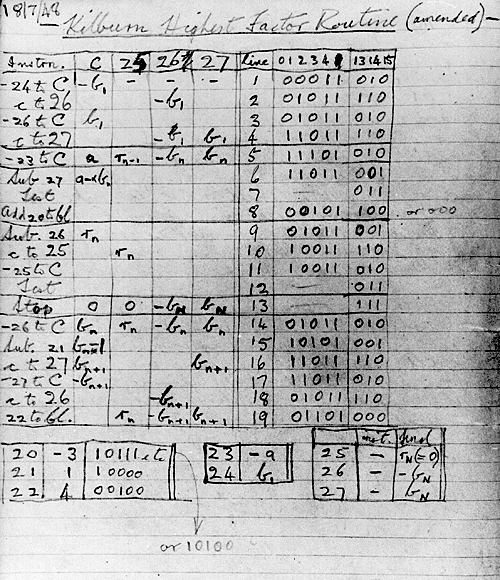 18/7/48
Kilburn Highest Factor Routine (amended) -
Instrn. C 25 26 27 line 0 1 2 3 4 13 14 15
-24 to C -b1 - - - 1 00011 010
c to 26 -b1 2 01011 110
-26 to C b1 3 01011 010
c to 27 -b1 b1 4 11011 110
-23 to C a rn-1 -bn bn 5 11101 010
Sub 27 a-bn 6 11011 001
Test 7 — 011
Add 20 to Cl. 8 00101 100 or 000
Sub. 26 rn 9 01011 001
c to 25 rn 10 10011 110
-25 to C 11 10011 010
Test 12 — 011
Stop 0 0 -bN bN 13 — 111
-26 to C bn rn -bn bn 14 01011 010
Sub 21 bn+1 15 10101 001
c to 27 bn+1 bn+1 16 11011 110
-27 to C -bn+1 17 11011 010
c to 26 -bn+1 18 01011 110
22 to Cl. rn -bn+1 bn+1 19 01101 000
20 -3 10111 etc
21 1 10000
22 4 00100
23 -a
24 b1
init. final
25 - rN(=0)
26 - -bN
27 - bN
or 10100